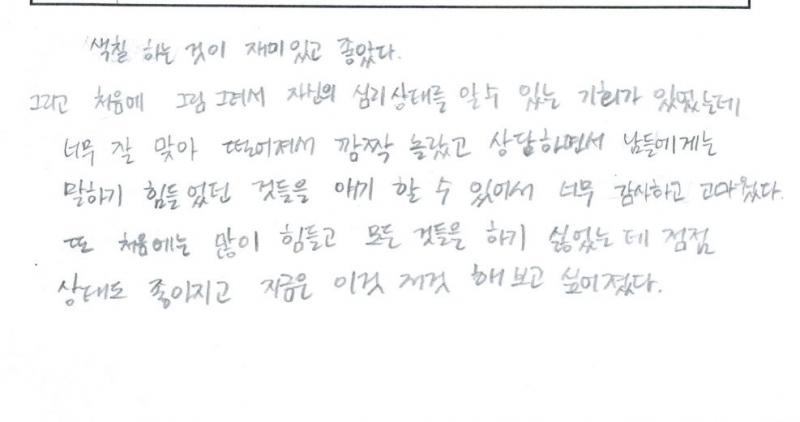 색칠 하는 것이 재미있고 좋았다.
그리고 처음에 그림 그려서 자신의 심리상태를 알 수 있는 기회가 있었는데
너무 잘 맞아 떨어져서 깜짝 놀랐고 상담하면서 남들에게는
말하기 힘들었던 것들을 얘기 할 수 있어서 너무 감사하고 고마웠다.
또 처음에는 많이 힘들고 모든 것들을 하기 싫었는데 점점
상태도 좋아지고 지금은 이것 저것 해보고 싶어졌다.